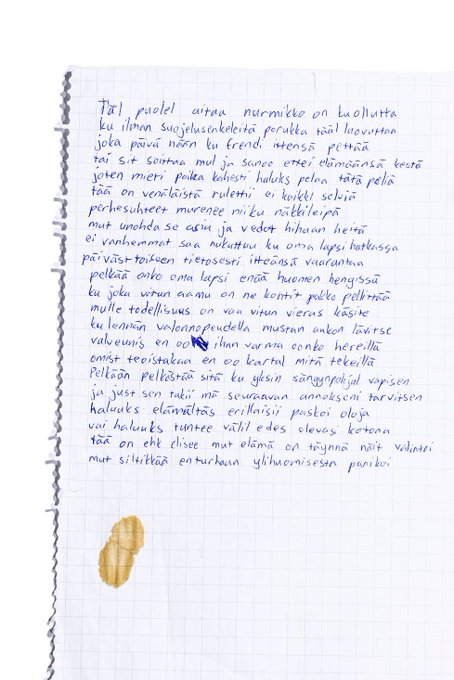 Täl puolel aitaa nurmikko on kuollutta
ku ilman suojelusenkeleitä porukka tääl luovuttaa
joka päivä nään ku frendi ittensä pettää
tai sit soittaa mul ja sanoo ettei elämäänsä kestä
joten mieti poika kahesti haluks pelaa tätä peliä
tää on venäläistä rulettii ei kaikki selviä
perhesuhteet murenee niiku näkkileipä
mut unohda se asia ja vedot hihaan heitä
ei vanhemmat saa nukuttuu ku oma lapsi hatkassa
päiväst toiseen tietosesti itteänsä vaarantaa
pelkää onko oma lapsi enää huomen hengissä
ku joka vitun aamu on ne kontit pakko pellittää
mulle todellisuus on vaa vitun vieras käsite
ku lennän valonnopeudella mustan aukon lävitse
valveunis en oo ihan varma oonko hereillä
omist teoistakaa en oo kartal mitä tekeillä
Pelkään pelkästää sitä ku yksin sängynpohjal vapisen
ja just sen takii mä seuraavan annokseni tarvitsen
haluuks elämältäs erillaisii paskoi oloja
vai haluuks tuntee välil edes olevas kotona
tää on ehk clisee mut elämä on täynnä näit valintoi
mut siltikkää en turhaan ylihuomisesta panikoi